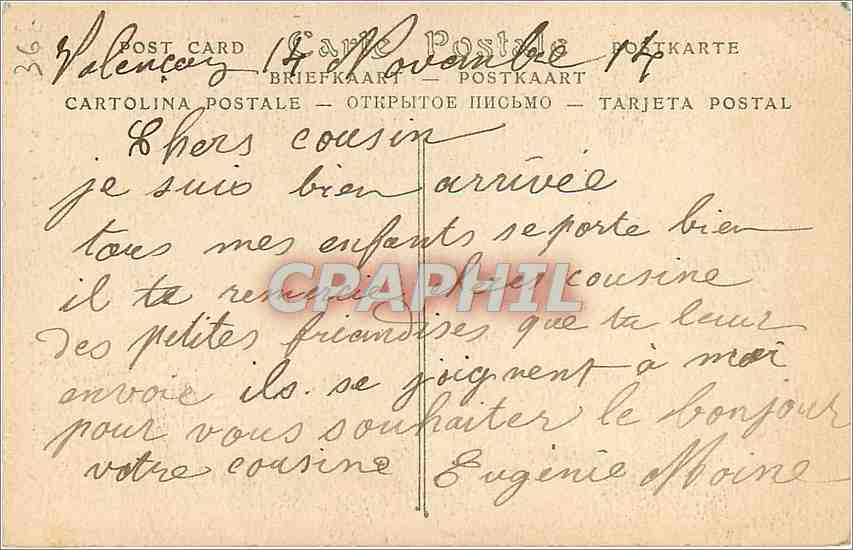 36
POST CARD Carte Postale POSTKARTE
Valençay 14 Novembre 14
BRIEFKAART — POSTKAART
CARTOLINA POSTALE — ОТКРЫТОЕ ПИСЬМО — TARJETA POSTAL
Chers cousin
je suis bien arrivée
tous mes enfants se porte bien
il te remercie chers cousine
CPARPHIL
des petites friandises que ta leur
envoie ils se joignent à moi
pour vous souhaiter le bonjour
votre cousine Eugénie Moine